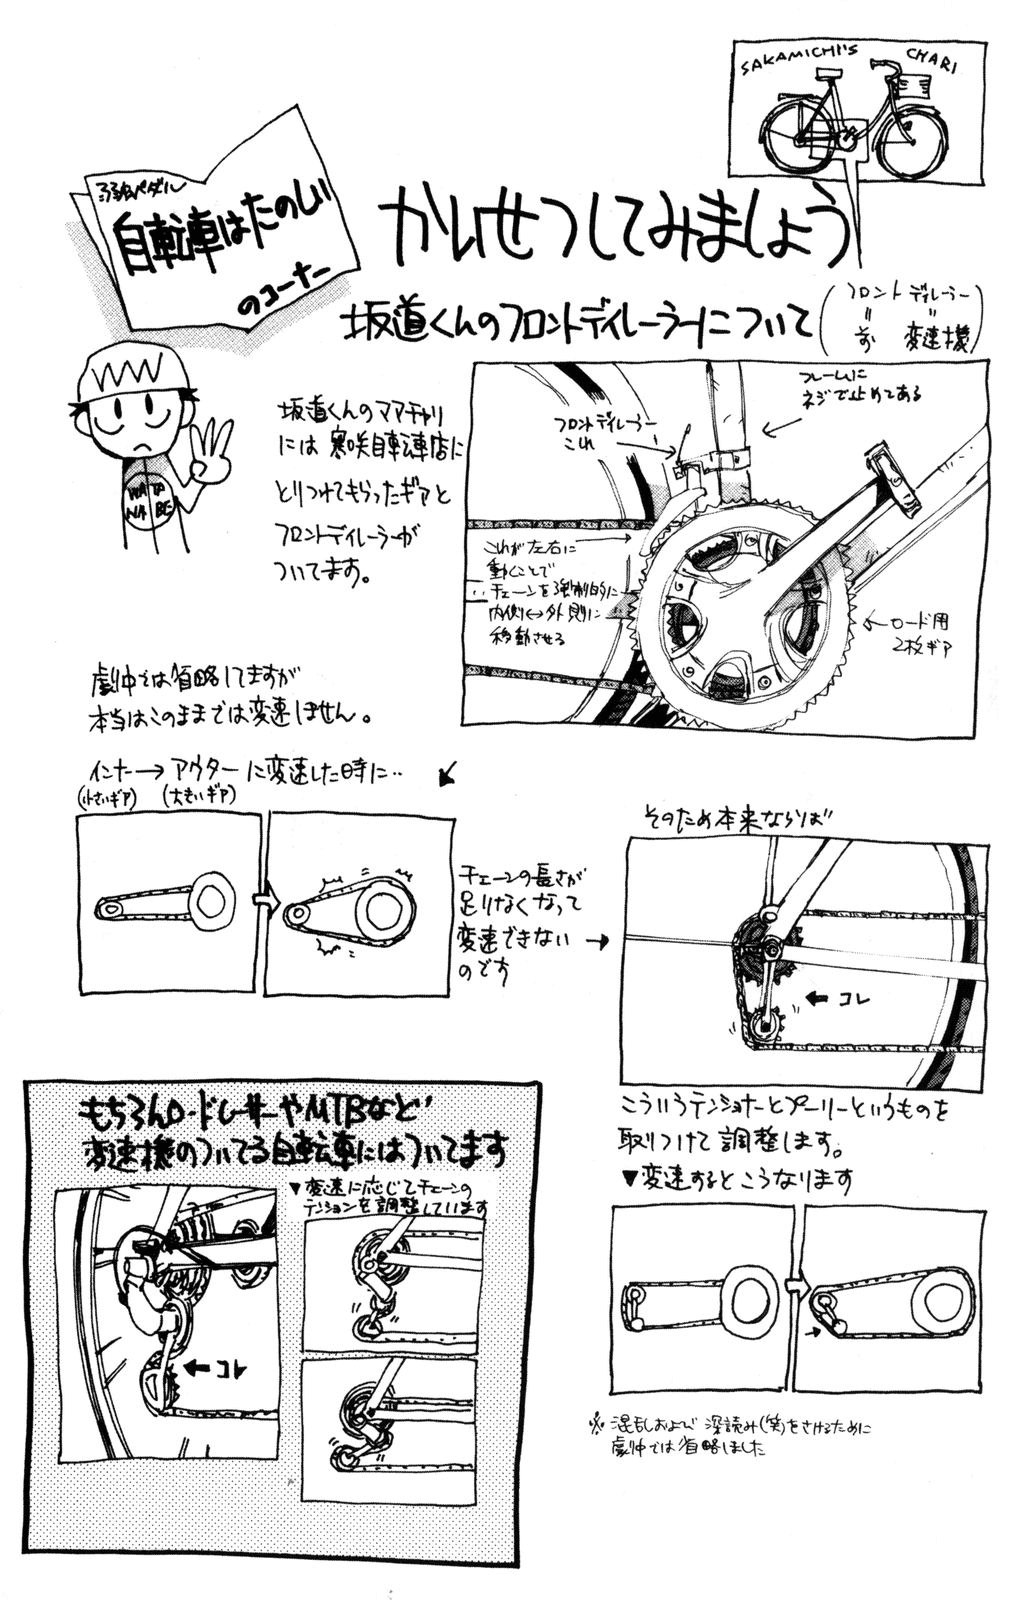 SAKAMICHI'S CHARI
弱虫ペダル
自転車はたのしい
のコーナー
かいせつしてみましょう
坂道くんのフロントディレーラーについて
フロント ディレーラー
〃 〃
前 変速機
WATA
NABE
坂道くんのママチャリ
には寒咲自転車店に
とりつけてもらったギアと
フロントディレーラーが
ついてます。
フレームに
ネジで止めてある
フロントディレーラー
これ
これが左右に
動くことで
チェーンを強制的に
内側↔外側に
移動させる
←ロード用
2枚ギア
劇中では省略してますが
本当はこのままでは変速しません。
インナー→アウターに変速した時に‥
(小さいギア) (大きいギア)
チェーンの長さが
足りなくなって
変速できない→
のです
そのため本来ならば
←コレ
こういうテンショナーとプーリーというものを
取りつけて調整します。
▼変速するとこうなります
※混乱および深読み(笑)をさけるために
劇中では省略しました
もちろんロードレーサーやMTBなど
変速機のついてる自転車にはついてます
▼変速に応じてチェーンの
テンションを調整しています
←コレ